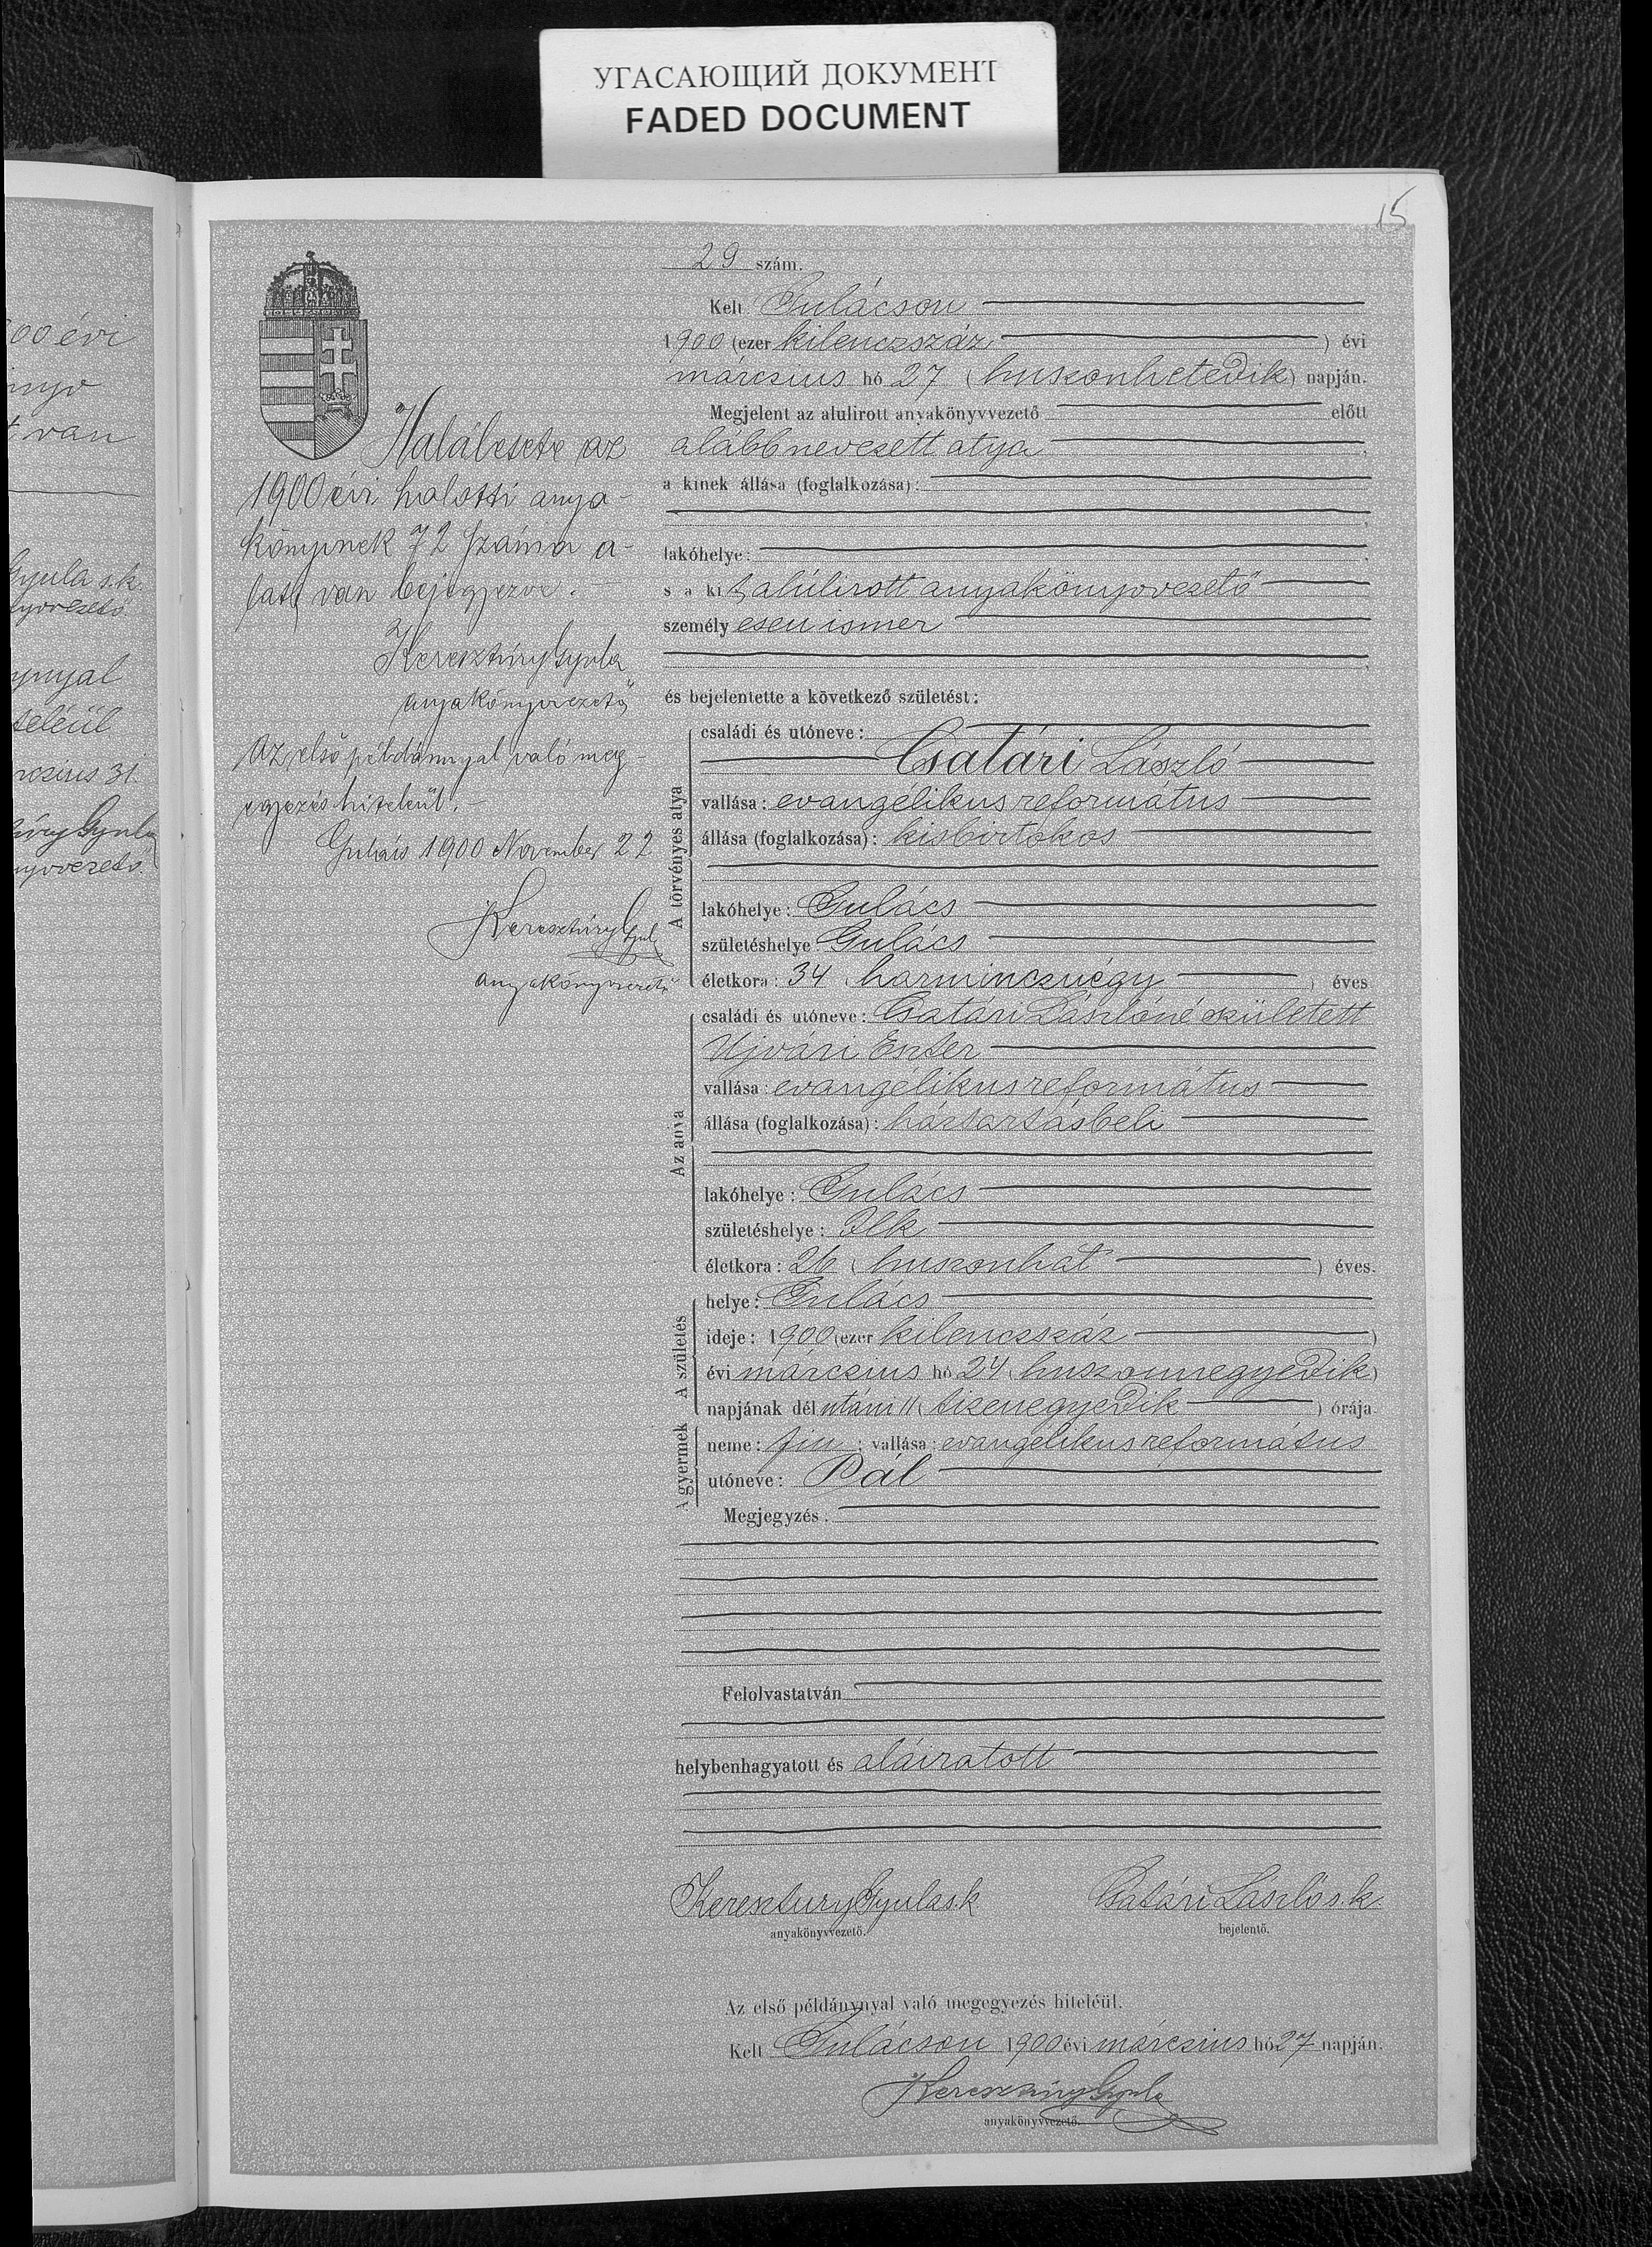 УГАСАЮЩИЙ ДОКУМЕНТ
FADED DOCUMENT
15
00 évi
van
Gyula s.k.
31.
Gyula
29 szám.
Kelt Gulácson
1900 (ezer kilenczszáz) évi
márczius hó 27 (huszonhetedik) napján.
Megjelent az alulirott anyakönyvvezető előtt
alább nevezett atya
a kinek állása (foglalkozása):
lakóhelye:
s a kit alúlirott anyakönyvvezető
személyesen ismer
és bejelentette a következő születést:
A törvényes atya
családi és utóneve:
Csatári László
vallása: evangélikus református
állása (foglalkozása): kisbirtokos
lakóhelye: Gulács
születéshelye: Gulács
életkora: 34 (harmincznégy) éves
Az anya
családi és utóneve: Csatári Lászlóné született
Ujvári Eszter
vallása: evangélikus református
állása (foglalkozása): háztartásbeli
lakóhelye: Gulács
születéshelye: Ilk
életkora: 26 (huszonhat) éves.
A születés
helye: Gulács
ideje: 1900 (ezer kilenczszáz)
évi márczius hó 24 (huszonnegyedik)
napjának délutáni 11 (tizenegyedik) órája
A gyermek
neme: fiu; vallása: evangélikus református
utóneve: Pál
Megjegyzés:
Felolvastatván
helybenhagyatott és aláiratott
Keresztury Gyula s.k.
anyakönyvvezető.
Csatári László s.k.
bejelentő.
Az első példánynyal való megegyezés hiteléül.
Kelt Gulácson 1900 évi márczius hó 27 napján.
Keresztúry Gyula
anyakönyvvezető.
Halálesete az
1900 évi halotti anya-
könyvnek 72 száma a-
latt van bejegyezve.
Keresztúry Gyula
anyakönyvvezető
Az első példánnyal való meg-
egyezés hiteléül.
Gulács 1900 November 22
Keresztúry Gyula
anyakönyvvezető